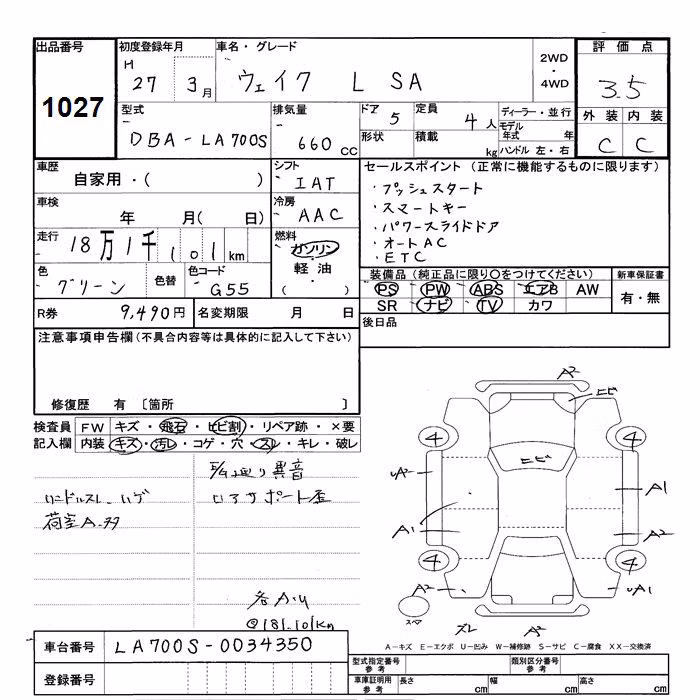 出品番号
1027
初度登録年月
H
27 3月
車名・グレード
ウェイク L SA
2WD
・
4WD
評価点
3.5
外装 内装
C C
型式
DBA-LA700S
排気量
660 cc
ドア 5
定員 4人
形状
積載 kg
ディーラー・並行
モデル年式 年
ハンドル 左・右
車歴
自家用・( )
シフト
IAT
車検
年 月( 日)
冷房
AAC
走行
18万1千101km
燃料
ガソリン
軽油
( )
色
グリーン
色替
色コード
G55
R券 9,490円
名変期限 月 日
セールスポイント (正常に機能するものに限ります)
・プッシュスタート
・スマートキー
・パワースライドドア
・オートAC
・ETC
装備品 (純正品に限り〇をつけてください)
PS PW ABS エアB AW
SR ナビ TV カワ
新車保証書
有・無
後日品
注意事項申告欄 (不具合内容等は具体的に記入して下さい)
修復歴 有 〔箇所 〕
検査員
記入欄
FW キズ・飛石・ヒビ割・リペア跡・×要
内装 キズ・汚レ・コゲ・穴・スレ・キレ・破レ
ハンドルスレ、ハゲ
荷室A・ヌ
異音
サポート歪
各A・U
@181,101km
A2
ヒビ
4
4
ヒビ
A2
A1
A1
A2
4
4
A2
UA1
スペ
ズレ
A2
A-キズ E-エクボ U-凹み W-補修跡 S-サビ C-腐食 XX-交換済
車台番号 LA700S-0034350
登録番号
型式指定番号
参考
類別区分番号
参考
車庫証明用
参考
長さ cm
幅 cm
高さ cm